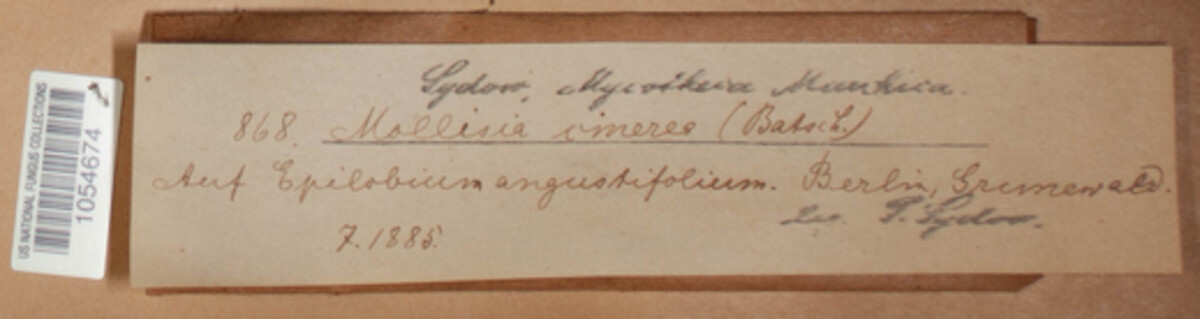 US NATIONAL FUNGUS COLLECTIONS
1054674
Sydow, Mycotheca Marchica.
868. Mollisia cinerea (Batsch.)
Auf Epilobium angustifolium. Berlin, Grunewald.
P. Sydow.
7.1885.